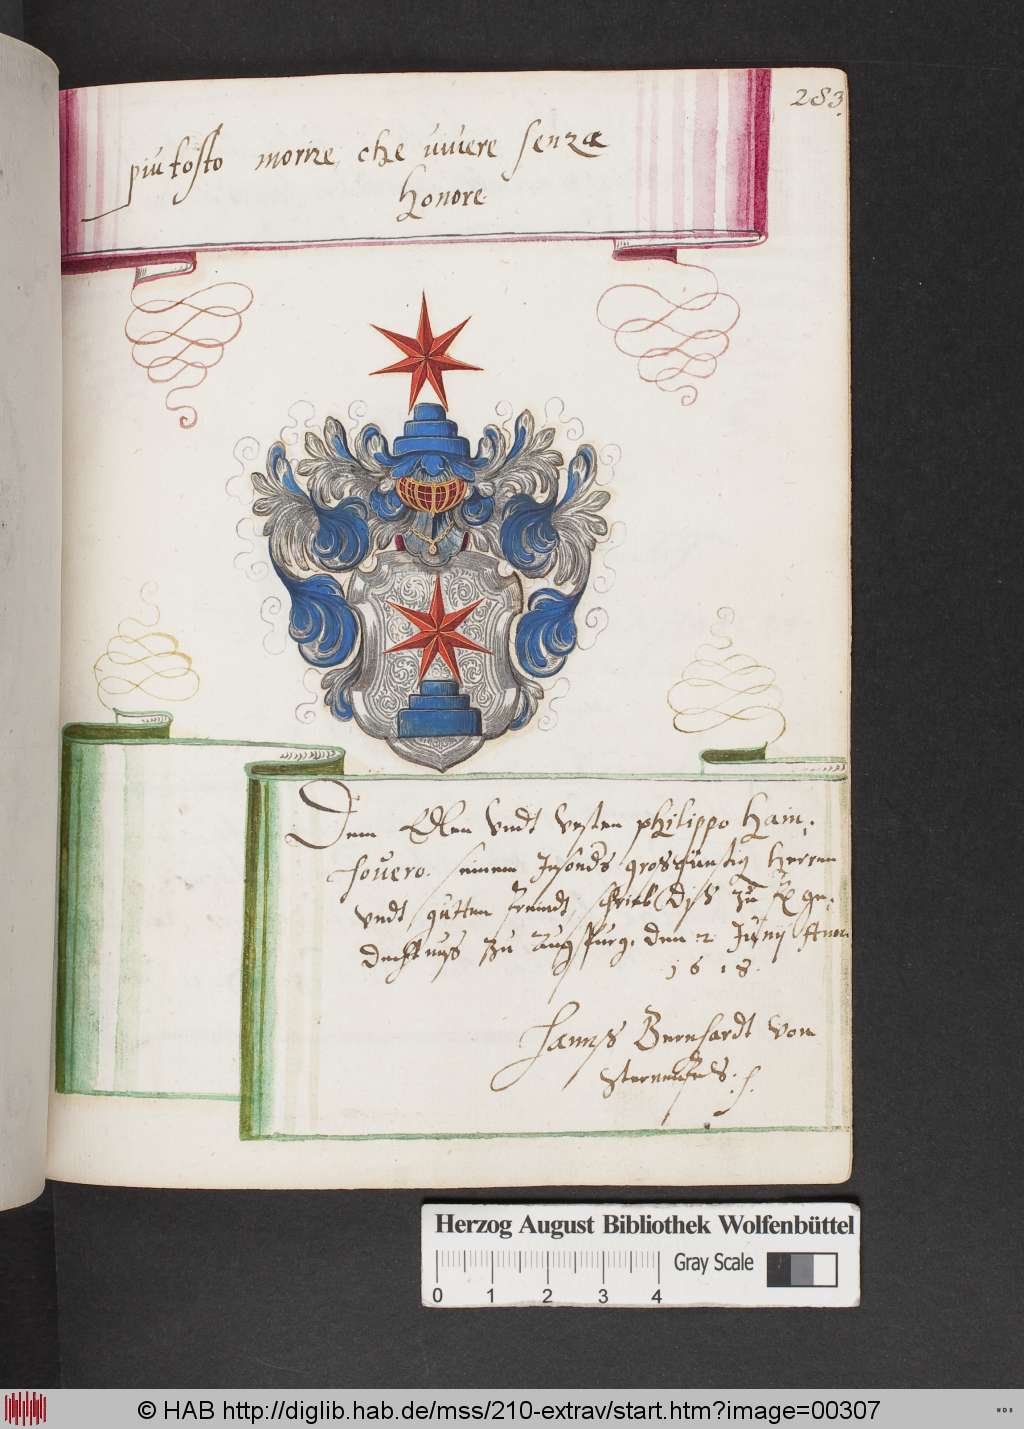 283
piu tosto morire, che viuere senza
honore.
Dem Edlen Vndt Vesten philippo Hain,
hovero. seinem Insonds grosgünstig Herren
Vndt gutten freindt, schrieb dis zu ge,
dechtnus zu augspurg. den 2 Junij Anno
1618.
Hanns Bernhardt von
Sternenfels.
Herzog August Bibliothek Wolfenbüttel
Gray Scale
0 1 2 3 4
© HAB http://diglib.hab.de/mss/210-extrav/start.htm?image=00307